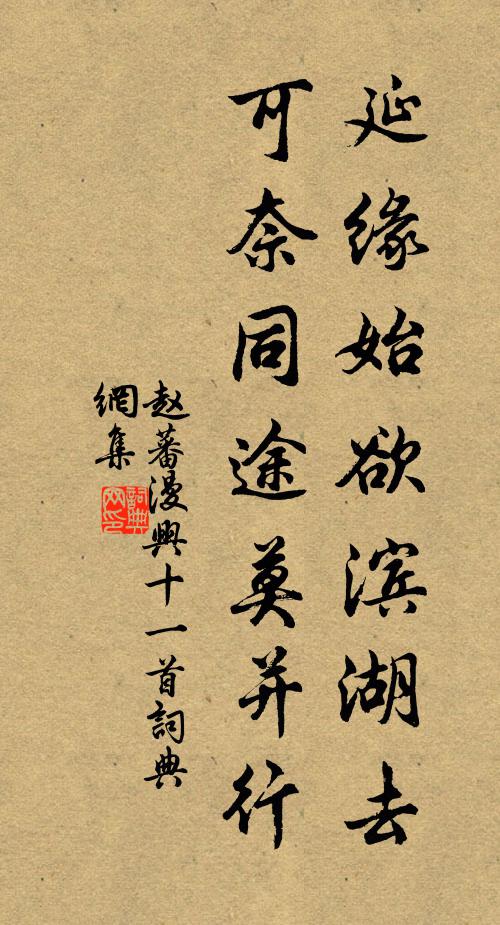 延缘始欲滨湖去
可奈同途莫并行
赵蕃漫興十一首詞典
網集
詞典网印